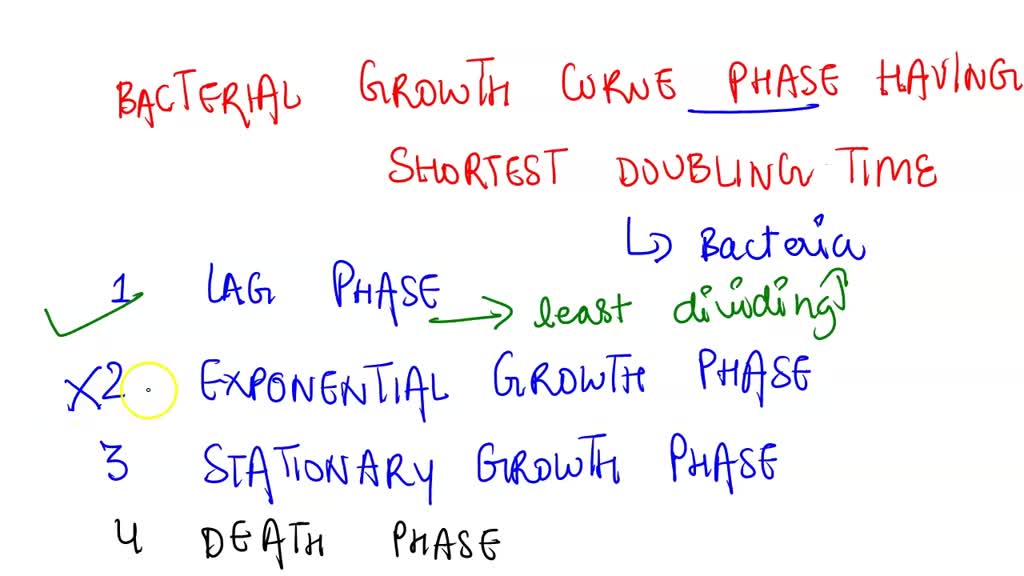 BACTERIAL GROWTH CURVE PHASE HAVING
SHORTEST DOUBLING TIME
↳ Bacteria
✓ 1 LAG PHASE → least dividing
X2 EXPONENTIAL GROWTH PHASE
3 STATIONARY GROWTH PHASE
4 DEATH PHASE